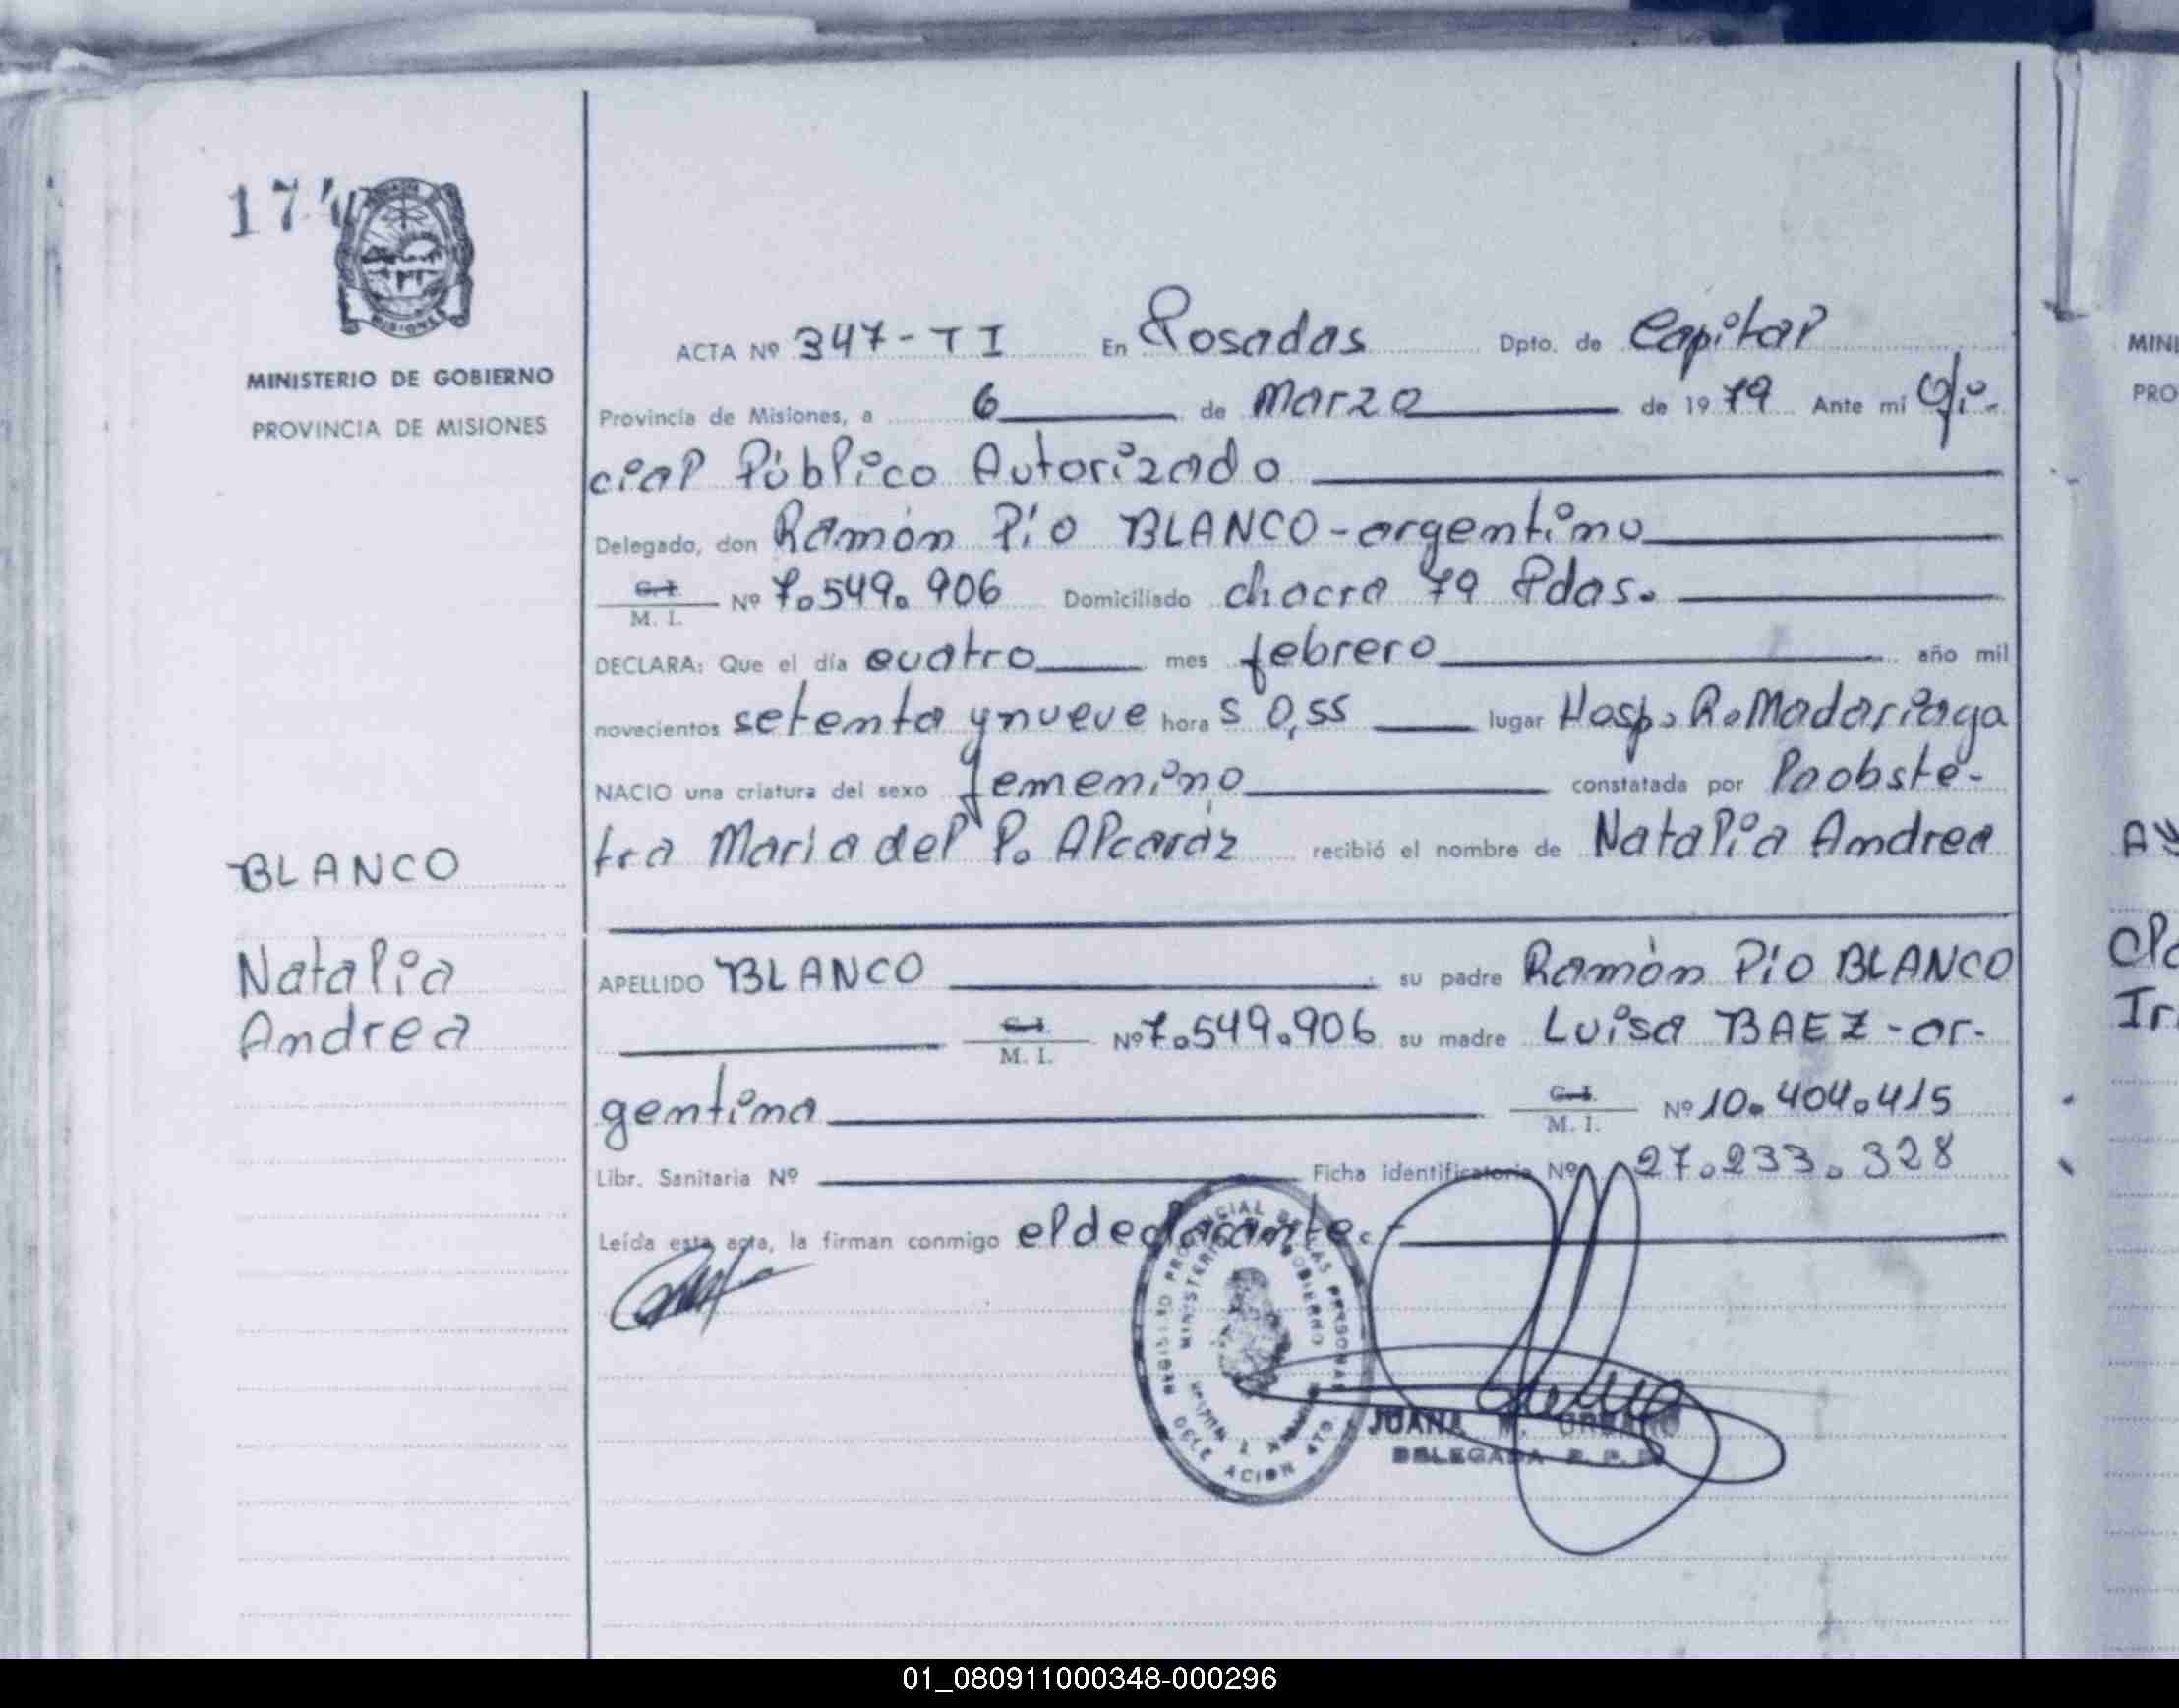 174
MISIONES
MINISTERIO DE GOBIERNO
PROVINCIA DE MISIONES
ACTA Nº 347-TI En Posadas Dpto. de Capital
Provincia de Misiones, a 6 de Marzo de 1979 Ante mi Ofi-
cial Público Autorizado
Delegado, don Ramón Pío BLANCO-argentino
C.I. M. I. Nº 7.549.906 Domiciliado chacra 79 Pdas.
DECLARA: Que el día cuatro mes febrero año mil
novecientos setenta y nueve hora s 0,55 lugar Hosp. R. Madariaga
NACIO una criatura del sexo femenino constatada por Pobste-
tra Maria del P. Alcaráz recibió el nombre de Natalia Andrea
BLANCO
Natalia
Andrea
APELLIDO BLANCO su padre Ramón Pío BLANCO
C.I. M. I. Nº 7.549.906 su madre Luisa BAEZ-ar-
gentina C.I. M. I. Nº 10.404.415
Libr. Sanitaria Nº Ficha identificatoria Nº 27.233.328
Leída esta acta, la firman conmigo el declarante.
REGISTRO PROVINCIAL DE LAS PERSONAS
MINISTERIO DE GOBIERNO
DELEGACION 4TO.
JUANA
DELEGADA
MINI
PRO
AY
Cla
Ir
01_080911000348-000296